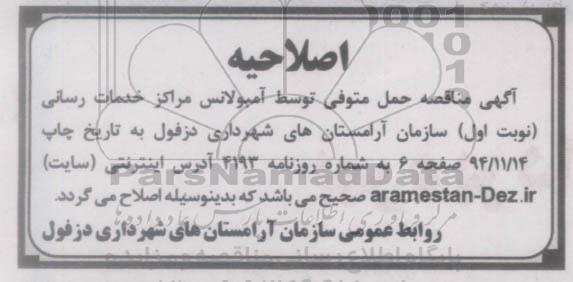 اصلاحیه
آگهی مناقصه حمل متوفی توسط آمبولانس مراکز خدمات رسانی
(نوبت اول) سازمان آرامستان های شهرداری دزفول به تاریخ چاپ
۹۴/۱۱/۱۴ صفحه ۶ به شماره روزنامه ۴۱۹۳ آدرس اینترنتی (سایت)
aramestan-Dez.ir صحیح می باشد که بدینوسیله اصلاح می گردد.
روابط عمومی سازمان آرامستان های شهرداری دزفول
ParsNamadData